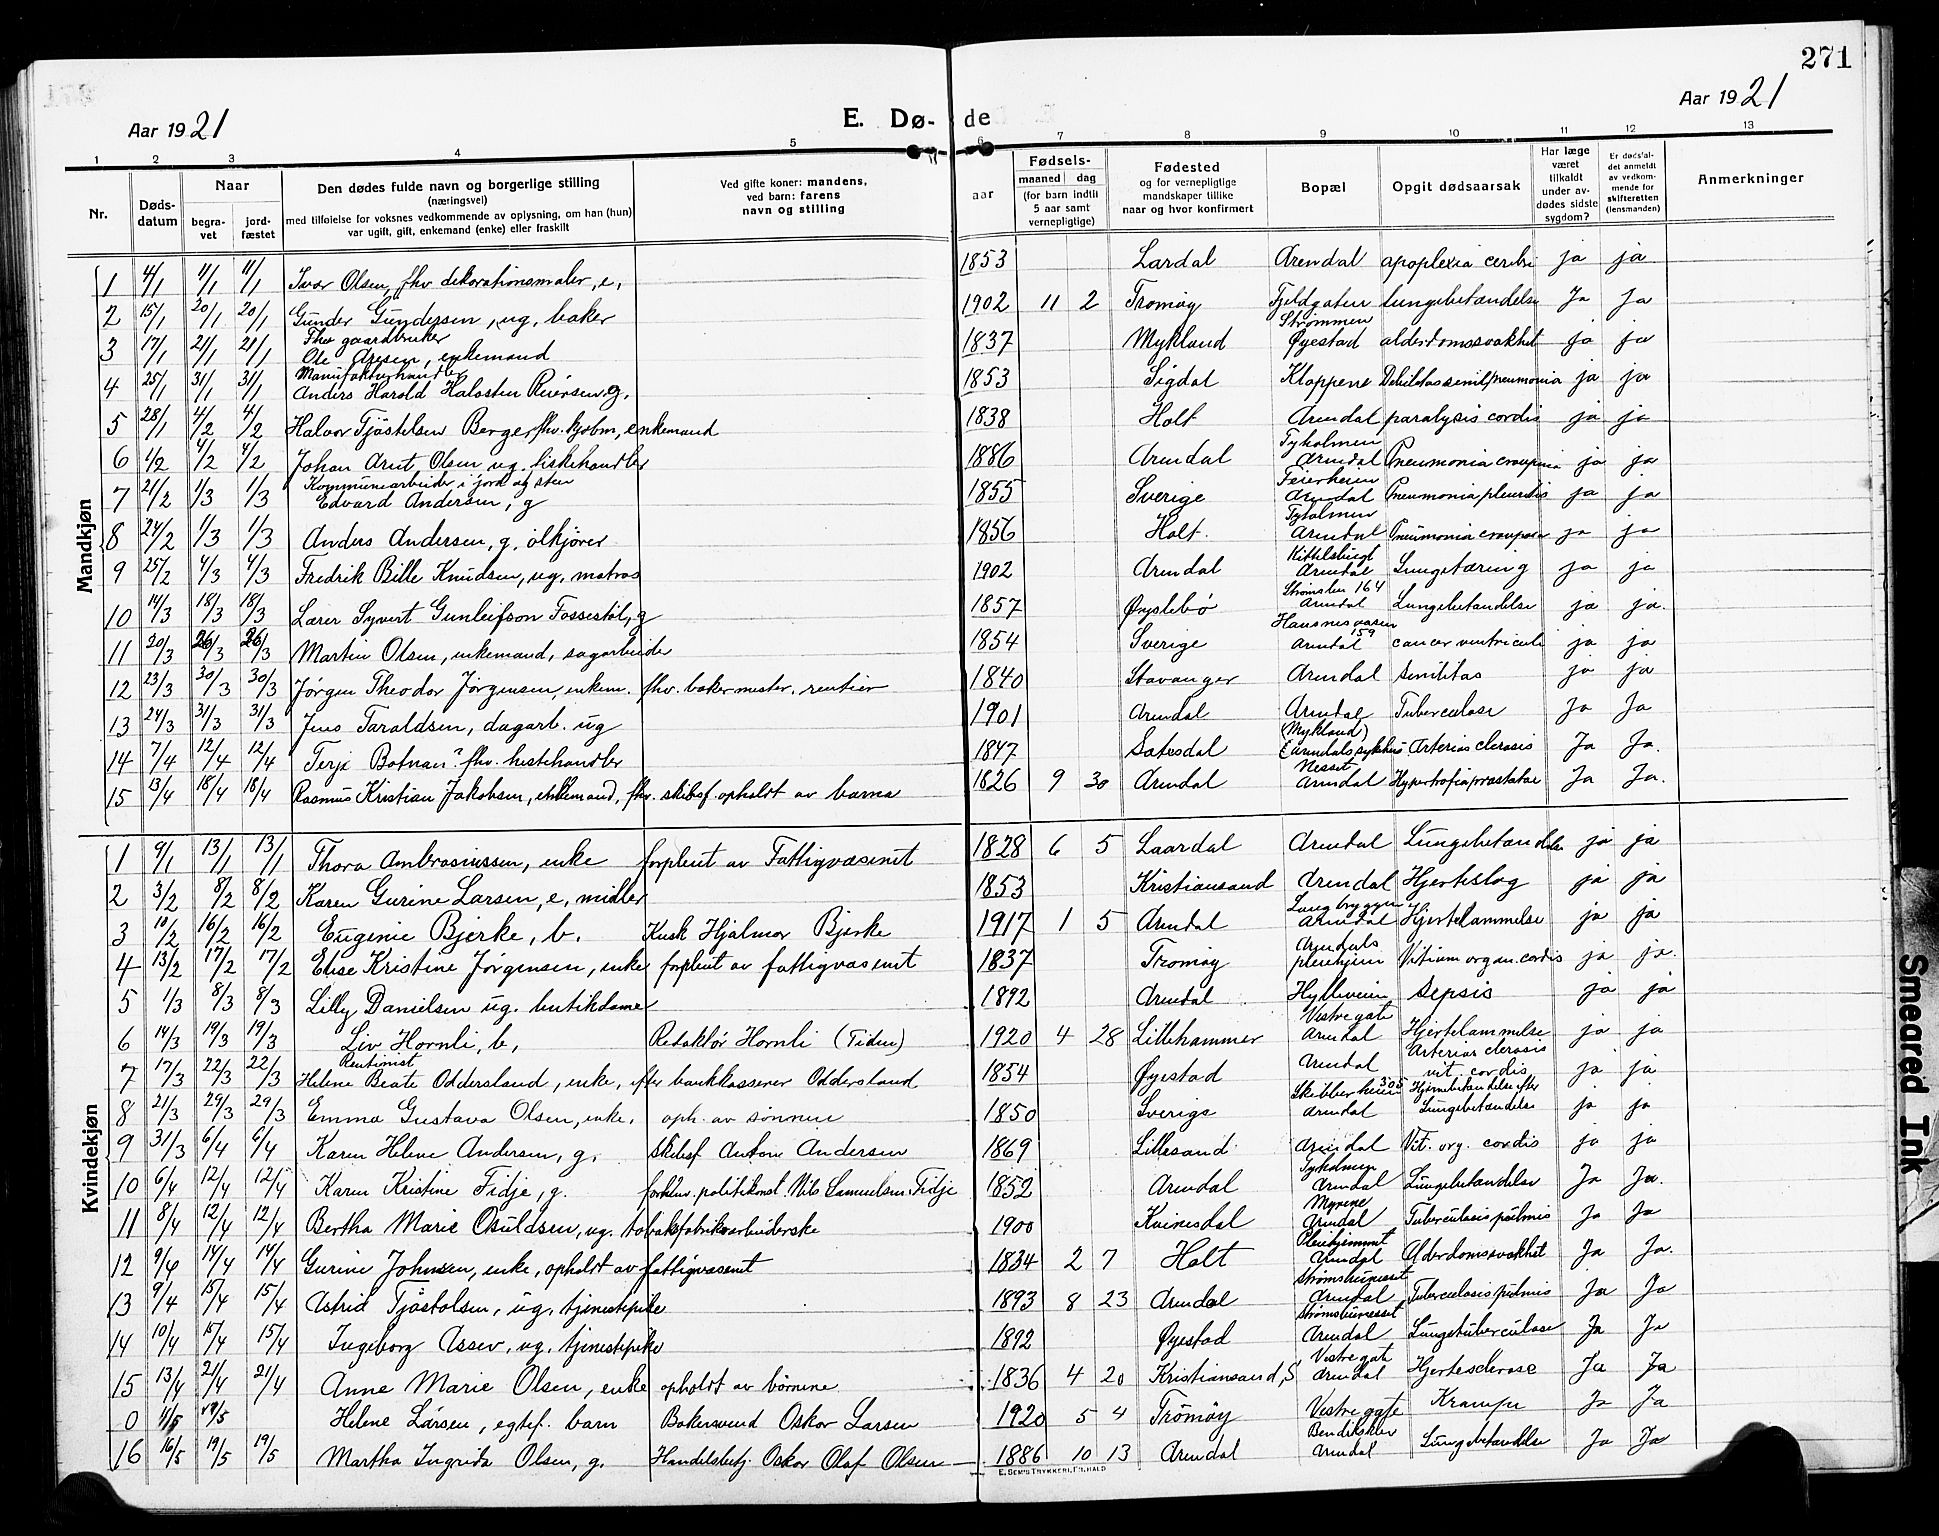 271
Aar 1921
E. Dø- de
Aar 1921
1 2 3 4 5 6 7 8 9 10 11 12 13
Nr.
Døds-datum
Naar
begra-vet
jord-fæstet
Den dødes fulde navn og borgerlige stilling
(næringsvei)
med tilføielse for voksnes vedkommende av oplysning, om han (hun)
var ugift, gift, enkemand (enke) eller fraskilt
Ved gifte koner: mandens,
ved barn: farens
navn og stilling
Fødsels-
aar
maaned dag
(for barn indtil
5 aar samt
vernepligtige)
Fødested
og for vernepligtige
mandskaper tillike
naar og hvor konfirmert
Bopæl
Opgit dødsaarsak
Har læge
været
tilkaldt
under av-
dødes sidste
sygdom?
Er dødsfal-
det anmeldt
av vedkom-
mende for
skifteretten
(lensmanden)
Anmerkninger
Mandkjøn
1 4/1 11/1 11/1 Ivar Olsen, fhv dekorationsmaler, e, 1853 Lardal Arendal apoplexia cerebri ja ja
2 15/1 20/1 20/1 Gunder Gundersen, ug, baker 1902 11 2 Tromøy Fjeldgaten Lungebetændelse Ja Ja
3 17/1 21/1 21/1 Fhv gaardbruker Ole Aresen, enkemand 1837 Mykland Strømmen Øyestad alderdomssvakhet ja ja
4 25/1 31/1 31/1 Manufakturhandler Anders Harold Halosten Reiersen, g, 1853 Sigdal Kloppene Debilitas senil, pneumonia ja ja
5 28/1 4/2 4/2 Halvor Tjøstelsen Berge, fhv. kjøbm, enkemand 1838 Holt Arendal paralysis cordis ja ja
6 1/2 4/2 4/2 Johan Arnt Olsen ug. fiskehandler 1886 Arendal Tyholmen Arendal Pneumonia crouposa ja ja
7 21/2 1/3 1/3 Kommunearbeider i jord og sten Edvard Andersen, g 1855 Sverige Feierheien Arendal Pneumonia pleuritis ja ja
8 24/2 1/3 1/3 Anders Andersen, g, ølkjører 1856 Holt. Tyholmen Arendal Pneumonia crouposa ja ja
9 25/2 4/3 4/3 Fredrik Bille Knudsen, ug, matros 1902 Arendal Kittelsbugt Arendal Lungetæring ja ja
10 14/3 18/3 18/3 Lærer Syvert Gunleifson Fossestøl, g 1857 Øyslebø Strømsbu 164 Arendal Lungebetændelse ja ja.
11 20/3 26/3 26/3 Martin Olsen, enkemand, sagarbeider 1854 Sverige 159 Arendal cancer ventriculi ja ja
12 23/3 30/3 30/3 Jørgen Theodor Jørgensen, enkem. fhv. bakermester, rentier 1840 Stavanger Arendal Senilitas ja ja
13 24/3 31/3 31/3 Jens Taraldsen, dagarb. ug 1901 Arendal Arendal Tuberculose Ja Ja
14 7/4 12/4 12/4 Terje Botnan? fhv. hestehandler 1847 Sætesdal (Mykland) Arendals sykehus Arterios clerosis Ja Ja.
15 13/4 18/4 18/4 Rasmus Kristian Jakobsen, enkemand, fhv. skibsf. opholdt av barna 1826 9 30 Arendal Nesset Arendal Hypertrofia prostatae Ja Ja.
Kvindekjøn
1 9/1 13/1 13/1 Thora Ambrosiussen, enke forpleiet av Fattigvæsenet 1828 6 5 Laardal Arendal Lungebetændelse ja ja
2 3/2 8/2 8/2 Karen Gurine Larsen, e, midler 1853 Kristiansand Arendal Hjerteslag ja ja
3 10/2 16/2 16/2 Eugenie Bjerke, b. Kusk Hjalmar Bjerke 1917 1 5 Arendal Langbryggen Arendal Hjertelammelse ja ja
4 13/2 17/2 17/2 Elise Kristine Jørgensen, enke forpleiet av fattigvæsenet 1837 Tromøy Arendals pleiehjem Vitium organ. cordis ja ja.
5 1/3 8/3 8/3 Lilly Danielsen ug. butikdame 1892 Arendal Hylleveien Sepsis ja ja
6 14/3 19/3 19/3 Liv Hornli, b, Redaktør Hornli (Tiden) 1920 4 28 Lillehammer Vestregate Arendal Hjertelammelse ja ja
7 17/3 22/3 22/3 Rentionist Helene Beate Oddersland, enke, efter bankkasserer Oddersland 1854 Øyestad Arendal Arterios clerosis vit. cordis ja ja
8 21/3 29/3 29/3 Emma Gustava Olsen, enke, oph. av sønnene 1850 Sverige Skibberheien 305 Arendal Hjernebetændelse efter Lungebetændelse ja ja
9 31/3 6/4 6/4 Karen Helene Andersen, g, skibsf. Anton Andersen 1869 Lillesand Arendal Vit. org. cordis ja ja
10 6/4 12/4 12/4 Karen Kristine Fidje, g. forhen. politikonst. Nils Samuelsen Fidje 1852 Arendal Tyholmen Arendal Lungebetændelse Ja Ja.
11 8/4 12/4 12/4 Bertha Marie Osuldsen, ug. tobaksfabrikarbeiderske 1900 Kvinesdal Myrene Arendal Tuberculosis pulmis Ja Ja
12 9/4 14/4 14/4 Gurine Johnsen, enke, opholdt av fattigvæsenet 1834 2 7 Holt Pleiehjemmet Arendal Alderdomssvakhet Ja Ja.
13 9/4 15/4 15/4 Astrid Tjøstolsen, ug, tjenestepike 1893 8 23 Arendal Strømsbuneset Arendal Tuberculosis pulmis Ja Ja
14 10/4 15/4 15/4 Ingeborg Assev, ug, tjenestepike 1892 Øyestad Strømsbuneset Arendal Lungetuberculose Ja Ja
15 13/4 21/4 21/4 Anne Marie Olsen, enke opholdt av børnene 1836 4 20 Kristiansand, S Vestregate Arendal Hjertesclerose Ja Ja
0 11/5 19/5 Helene Larsen, egtef. barn Bakersvend Oskar Larsen 1920 5 4 Tromøy Vestregate Krampe Ja Ja
16 16/5 19/5 19/5 Martha Ingrida Olsen, g, Handelsbetj. Oskar Olaf Olsen 1886 10 13 Arendal Bendiksklev Arendal Lungebetændelse Ja Ja
E. SEM'S TRYKKERI, FR.HALD
Smeared Ink